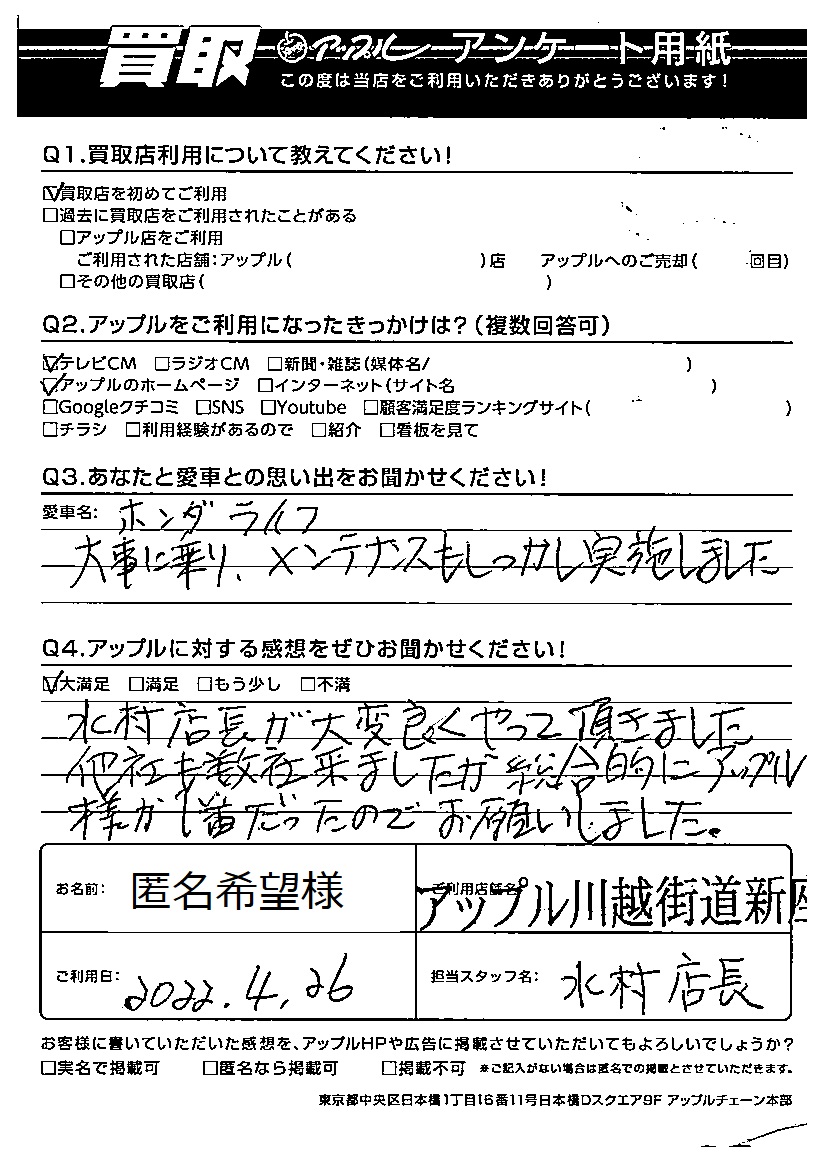 買取 アップル アンケート用紙
この度は当店をご利用いただきありがとうございます!
Q1.買取店利用について教えてください!
☑買取店を初めてご利用
□過去に買取店をご利用されたことがある
□アップル店をご利用
ご利用された店舗:アップル( )店 アップルへのご売却( 回目)
□その他の買取店( )
Q2.アップルをご利用になったきっかけは?(複数回答可)
☑テレビCM □ラジオCM □新聞・雑誌(媒体名/ )
☑アップルのホームページ □インターネット(サイト名 )
□Googleクチコミ □SNS □Youtube □顧客満足度ランキングサイト( )
□チラシ □利用経験があるので □紹介 □看板を見て
Q3.あなたと愛車との思い出をお聞かせください!
愛車名: ホンダ ライフ
大事に乗り、メンテナンスもしっかし実施しました
Q4.アップルに対する感想をぜひお聞かせください!
☑大満足 □満足 □もう少し □不満
水村店長が大変良くやって頂きました
他社も数社来ましたが総合的にアップル
様が1番だったのでお願いしました。
お名前: 匿名希望様 ご利用店舗名: アップル川越街道新座
ご利用日: 2022.4.26 担当スタッフ名: 水村店長
お客様に書いていただいた感想を、アップルHPや広告に掲載させていただいてもよろしいでしょうか?
□実名で掲載可 □匿名なら掲載可 □掲載不可 ※ご記入がない場合は匿名での掲載とさせていただきます。
東京都中央区日本橋1丁目16番11号日本橋Dスクエア9F アップルチェーン本部